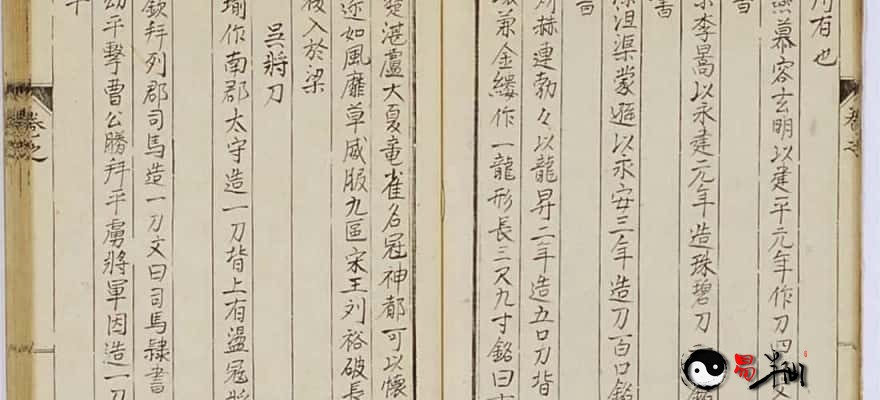 所有也
燕慕容玄明以建平元年作刀四文
書
李暠以永建元年造珠碧刀銘
書
沮渠蒙遜以永安三年造刀百口銘
書
朔赫連勃々以龍昇二年造五口刀背
環兼金縷作一龍形長三尺九寸銘曰古
楚湛盧大夏竜雀名冠神都可以懷
近如風靡草威服九區宋王列裕破長
後入於梁
吳將刀
瑜作南郡太守造一刀背上有盪冠將
欽拜列郡司馬造一刀文曰司馬隷書
幼平擊曹公勝拜平虜將軍因造一刀
平
卷之
卷之
易